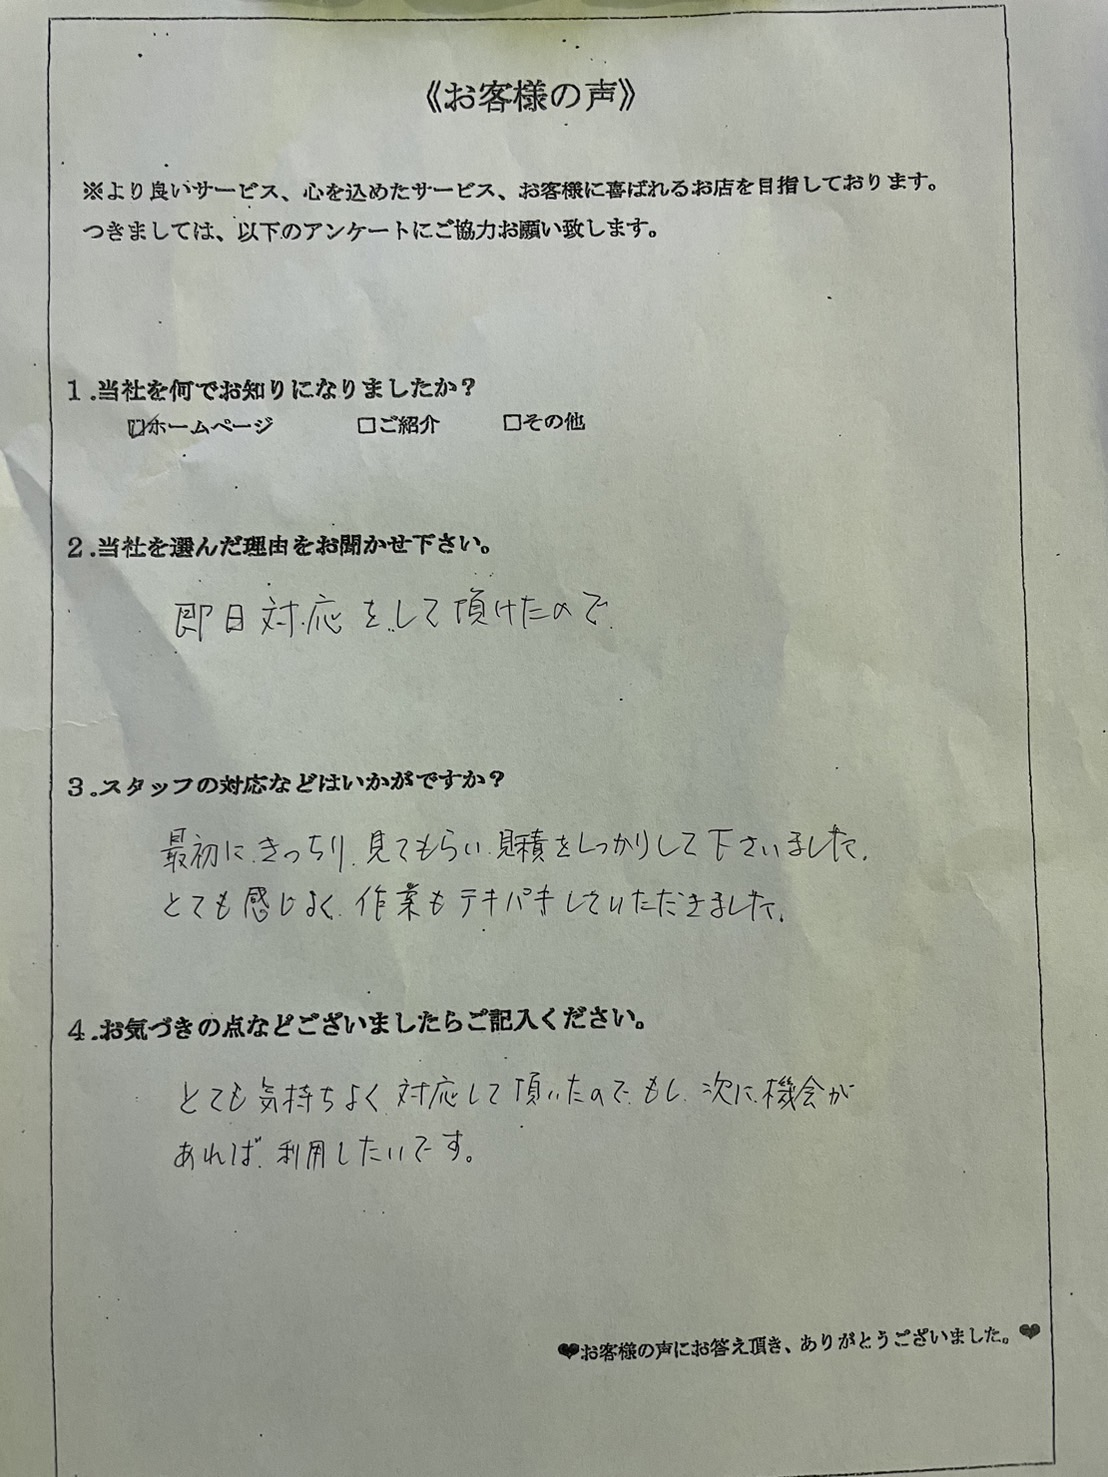 《お客様の声》
※より良いサービス、心を込めたサービス、お客様に喜ばれるお店を目指しております。
つきましては、以下のアンケートにご協力お願い致します。
1.当社を何でお知りになりましたか？
☑ホームページ　□ご紹介　□その他
2.当社を選んだ理由をお聞かせ下さい。
即日対応をして頂けたので
3.スタッフの対応などはいかがですか？
最初に、きっちり、見てもらい、見積をしっかりして下さいました。
とても感じよく、作業もテキパキしていただきました。
4.お気づきの点などございましたらご記入ください。
とても気持ちよく、対応して頂いたので、もし、次に、機会が
あれば、利用したいです。
❤お客様の声にお答え頂き、ありがとうございました。❤